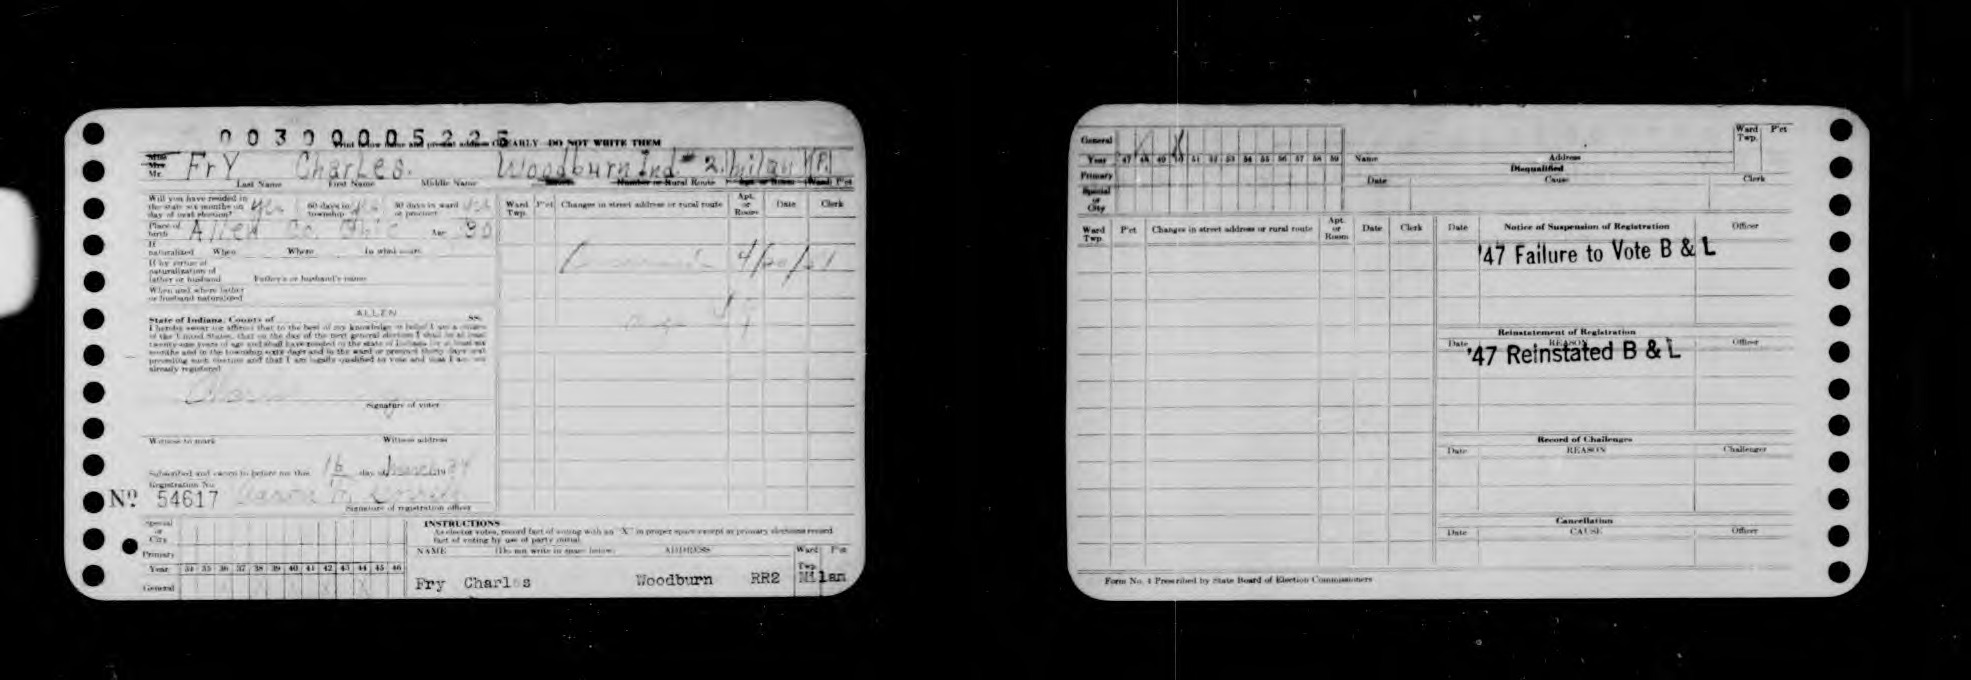 00300005225
Print below name and present address CLEARLY—DO NOT WRITE THEM
Miss
Mrs.
Mr. Fry Charles. Woodburn Ind. #2. Milan
Last Name First Name Middle Name Street Number or Rural Route Apt. or Room Ward P'ct
Will you have resided in
the state six months on yes 60 days in yes 30 days in ward yes
day of next election? township or precinct
Place of
birth Allen Co Ohio Age 30
If
naturalized When Where In what court
If by virtue of
naturalization of
father or husband Father's or husband's name
When and where father
or husband naturalized
State of Indiana, County of ALLEN ss.
I hereby swear (or affirm) that to the best of my knowledge or belief I am a citizen
of the United States, that on the day of the next general election I shall be at least
twenty-one years of age and shall have resided in the state of Indiana for at least six
months and in the township sixty days and in the ward or precinct thirty days next
preceding such election and that I am legally qualified to vote and that I am not
already registered
Charles
Signature of voter
Witness to mark Witness address
Subscribed and sworn to before me this 16 day of March 19 34
Registration No.
No. 54617 Aaron M.
Signature of registration officer
Ward Twp. P'ct Changes in street address or rural route Apt. or Room Date Clerk
Special
or
City
Primary
Year 34 35 36 37 38 39 40 41 42 43 44 45 46
General X X X
INSTRUCTIONS
As elector votes, record fact of voting with an "X" in proper space except at primary elections record
fact of voting by use of party initial.
NAME (Do not write in space below) ADDRESS Ward Twp P'ct
Fry Charles Woodburn RR2 Milan
General X X
Year 47 48 49 50 51 52 53 54 55 56 57 58 59
Primary
Special
or
City
Ward
Twp. P'ct
Name Address
Disqualified
Date Cause Clerk
Ward
Twp. P'ct Changes in street address or rural route Apt. or Room Date Clerk
Date Notice of Suspension of Registration Officer
'47 Failure to Vote B & L
Reinstatement of Registration
Date REASON Officer
'47 Reinstated B & L
Record of Challenges
Date REASON Challenger
Cancellation
Date CAUSE Officer
Form No. 4 Prescribed by State Board of Election Commissioners